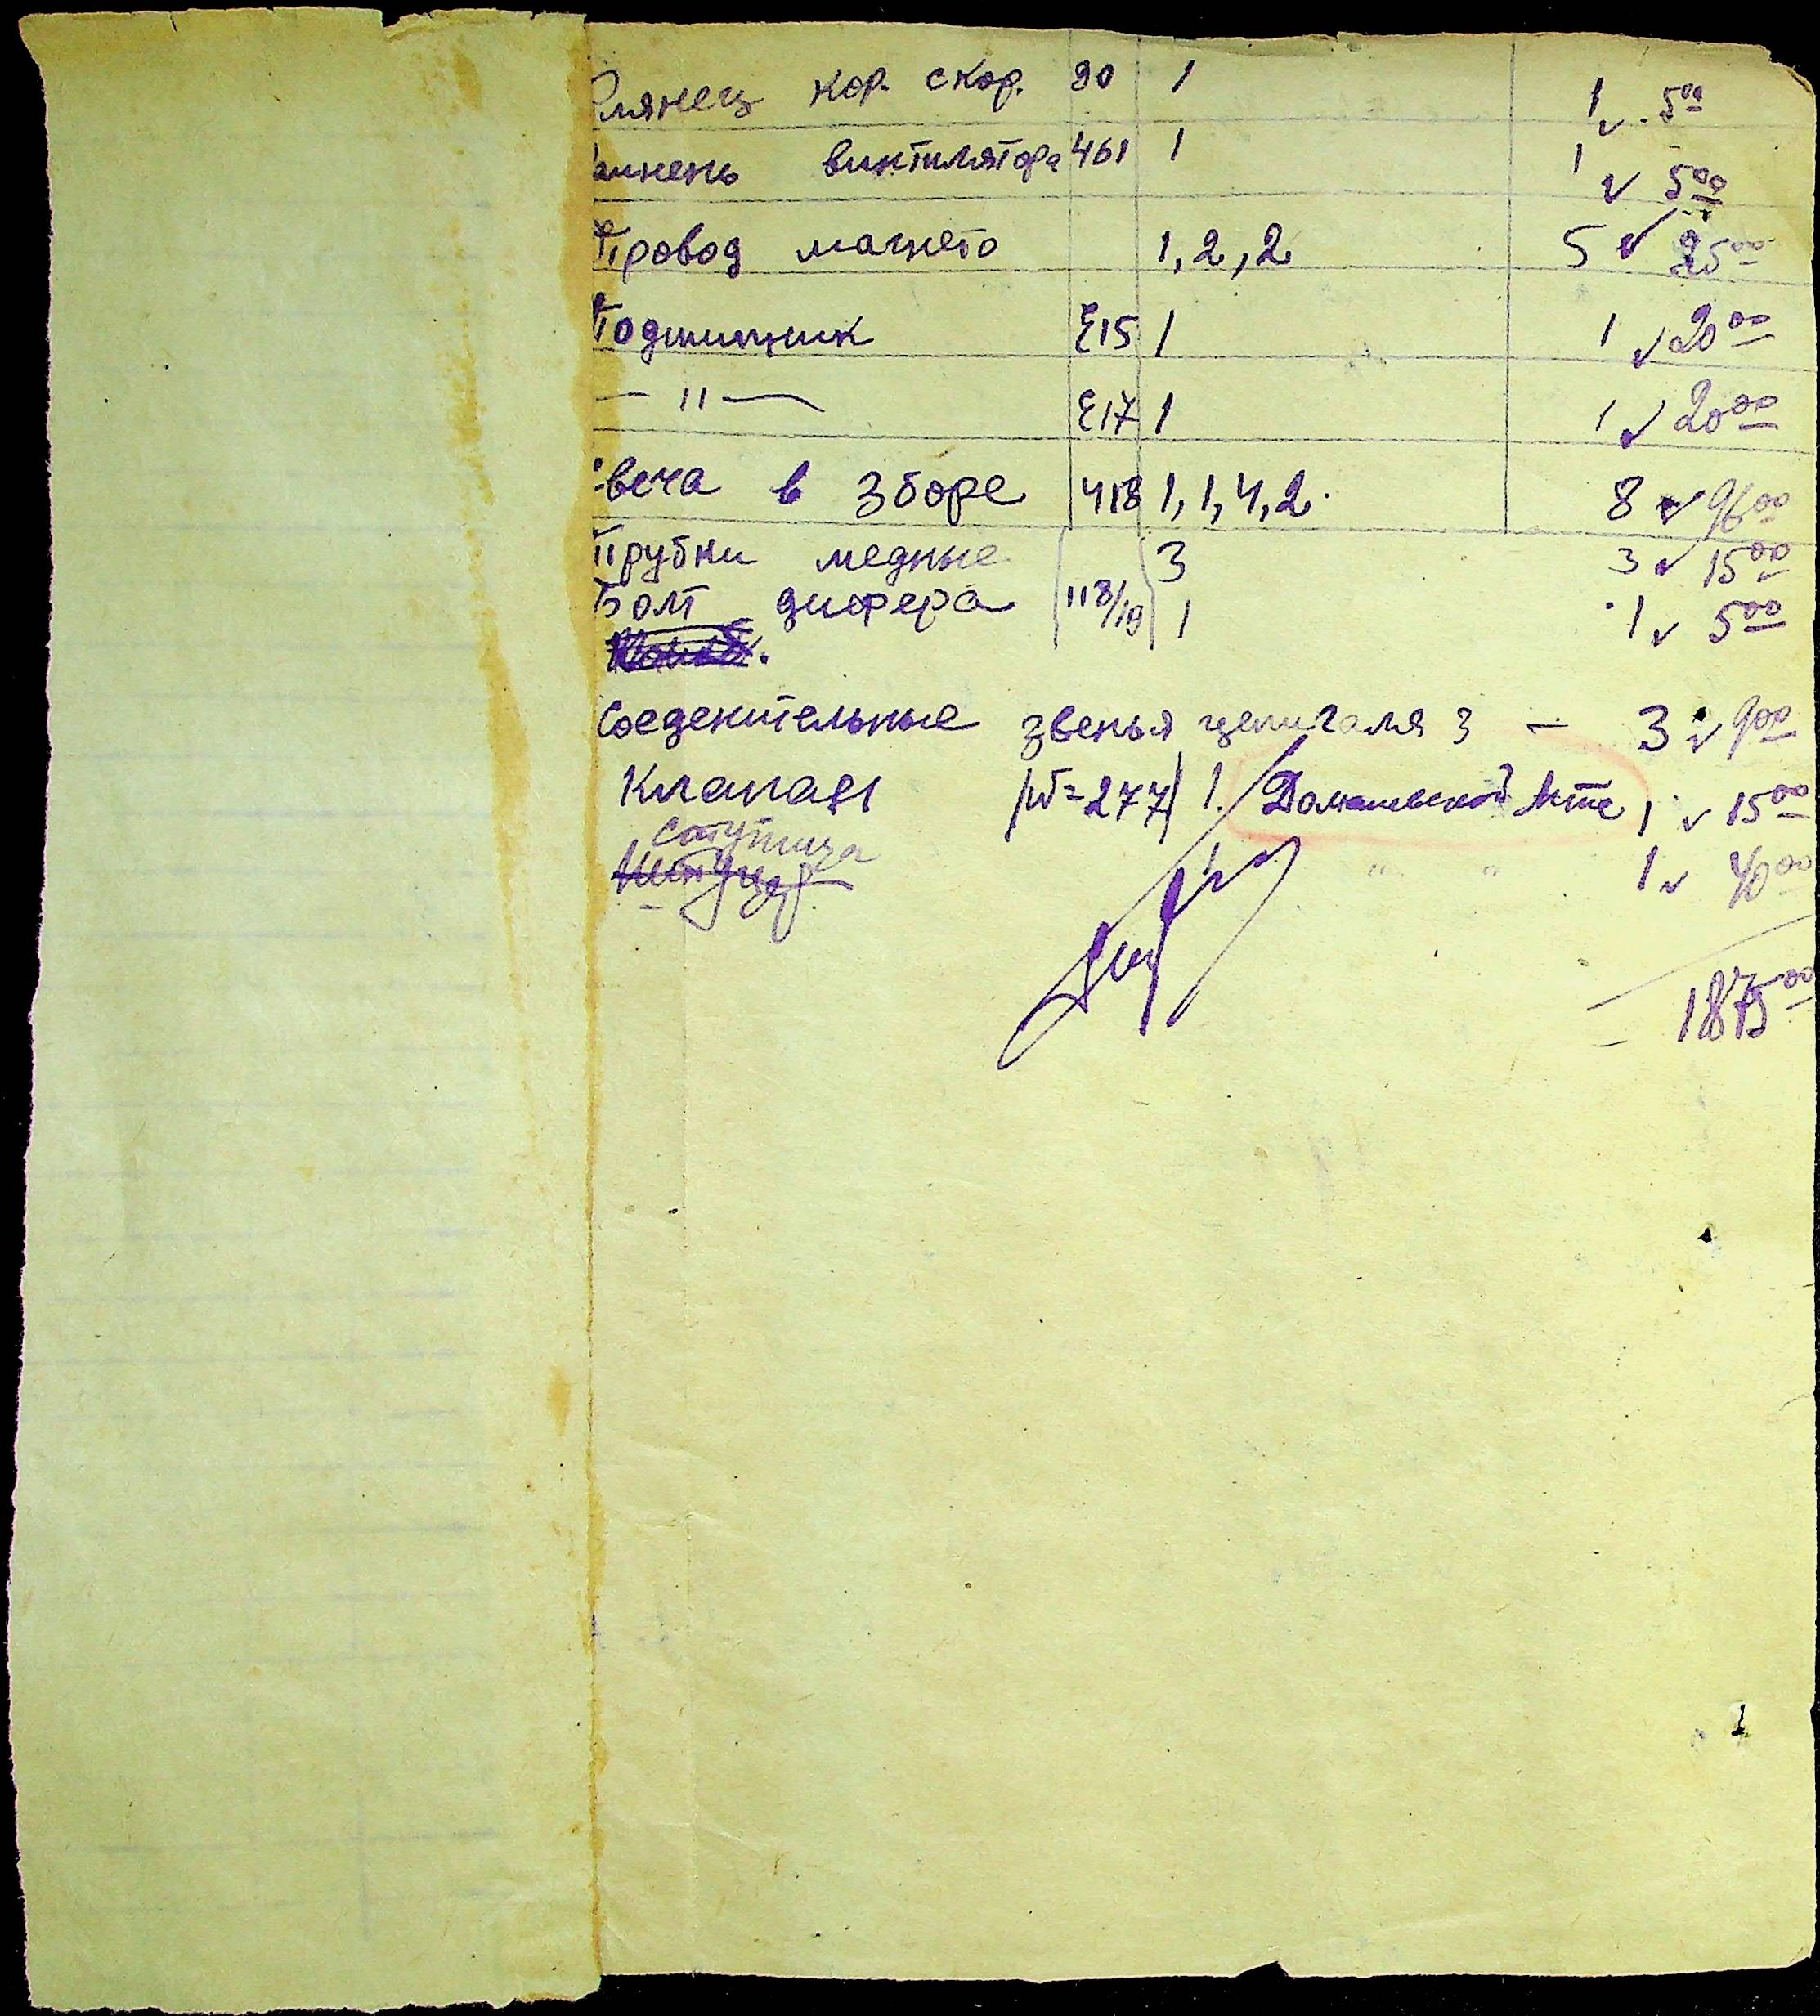 Флянец кор. скор. 90 1 1 ✓. 5 00
винтилятора 461 1 1 ✓ 5 00
Провод магнето 1, 2, 2 5 ✓ 25 00
Подшипник Е15 1 1 ✓ 20 00
— 〃 — Е17 1 1 ✓ 20 00
Свеча в зборе 418 1, 1, 4, 2. 8 ✓ 96 00
Трубки медные 3 3 ✓ 15 00
Болт дифера 118/19 1 1 ✓ 5 00
Соеденительные звенья цепи галя 3 — 3 ✓ 9 00
Клапан № = 277 1. 1 ✓ 15 00
Ступица 1 " " 1 ✓ 40 00
1875 00